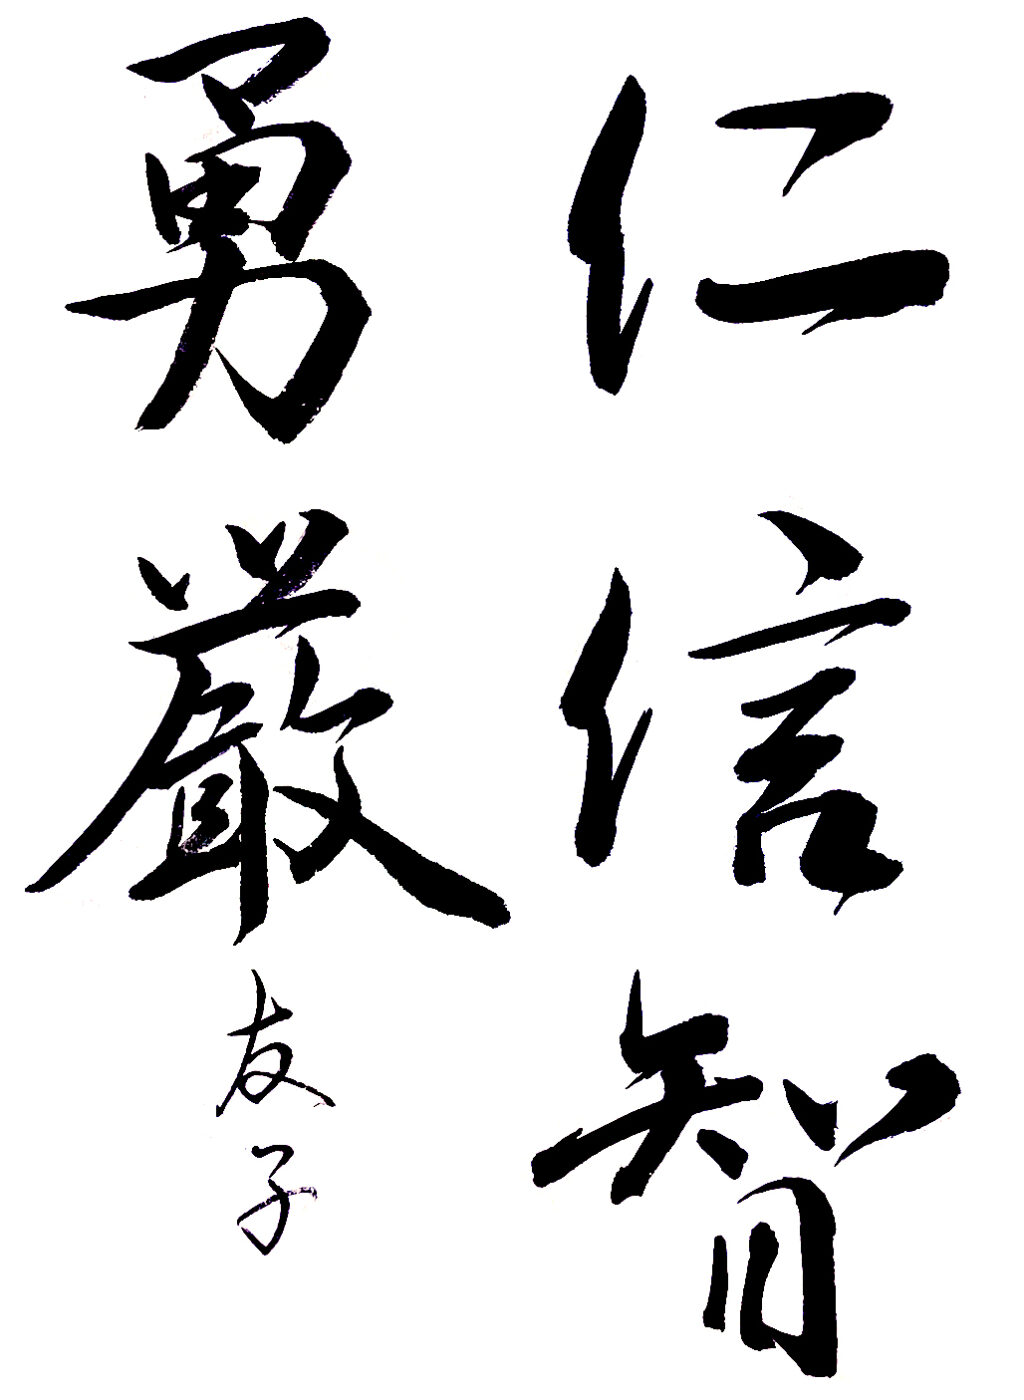 仁信智
勇厳
友子